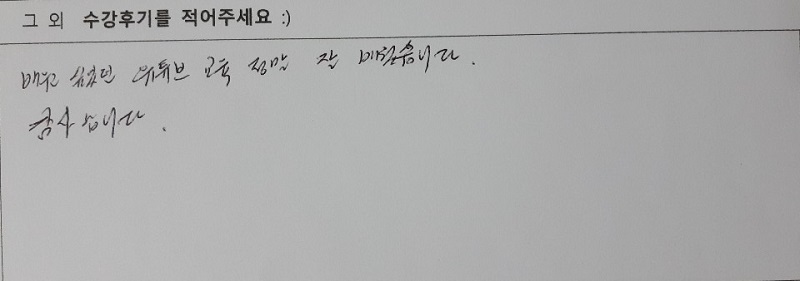 그 외 수강후기를 적어주세요 :)
배우고 싶었던 유튜브 교육 정말 잘 배웠습니다.
감사합니다.